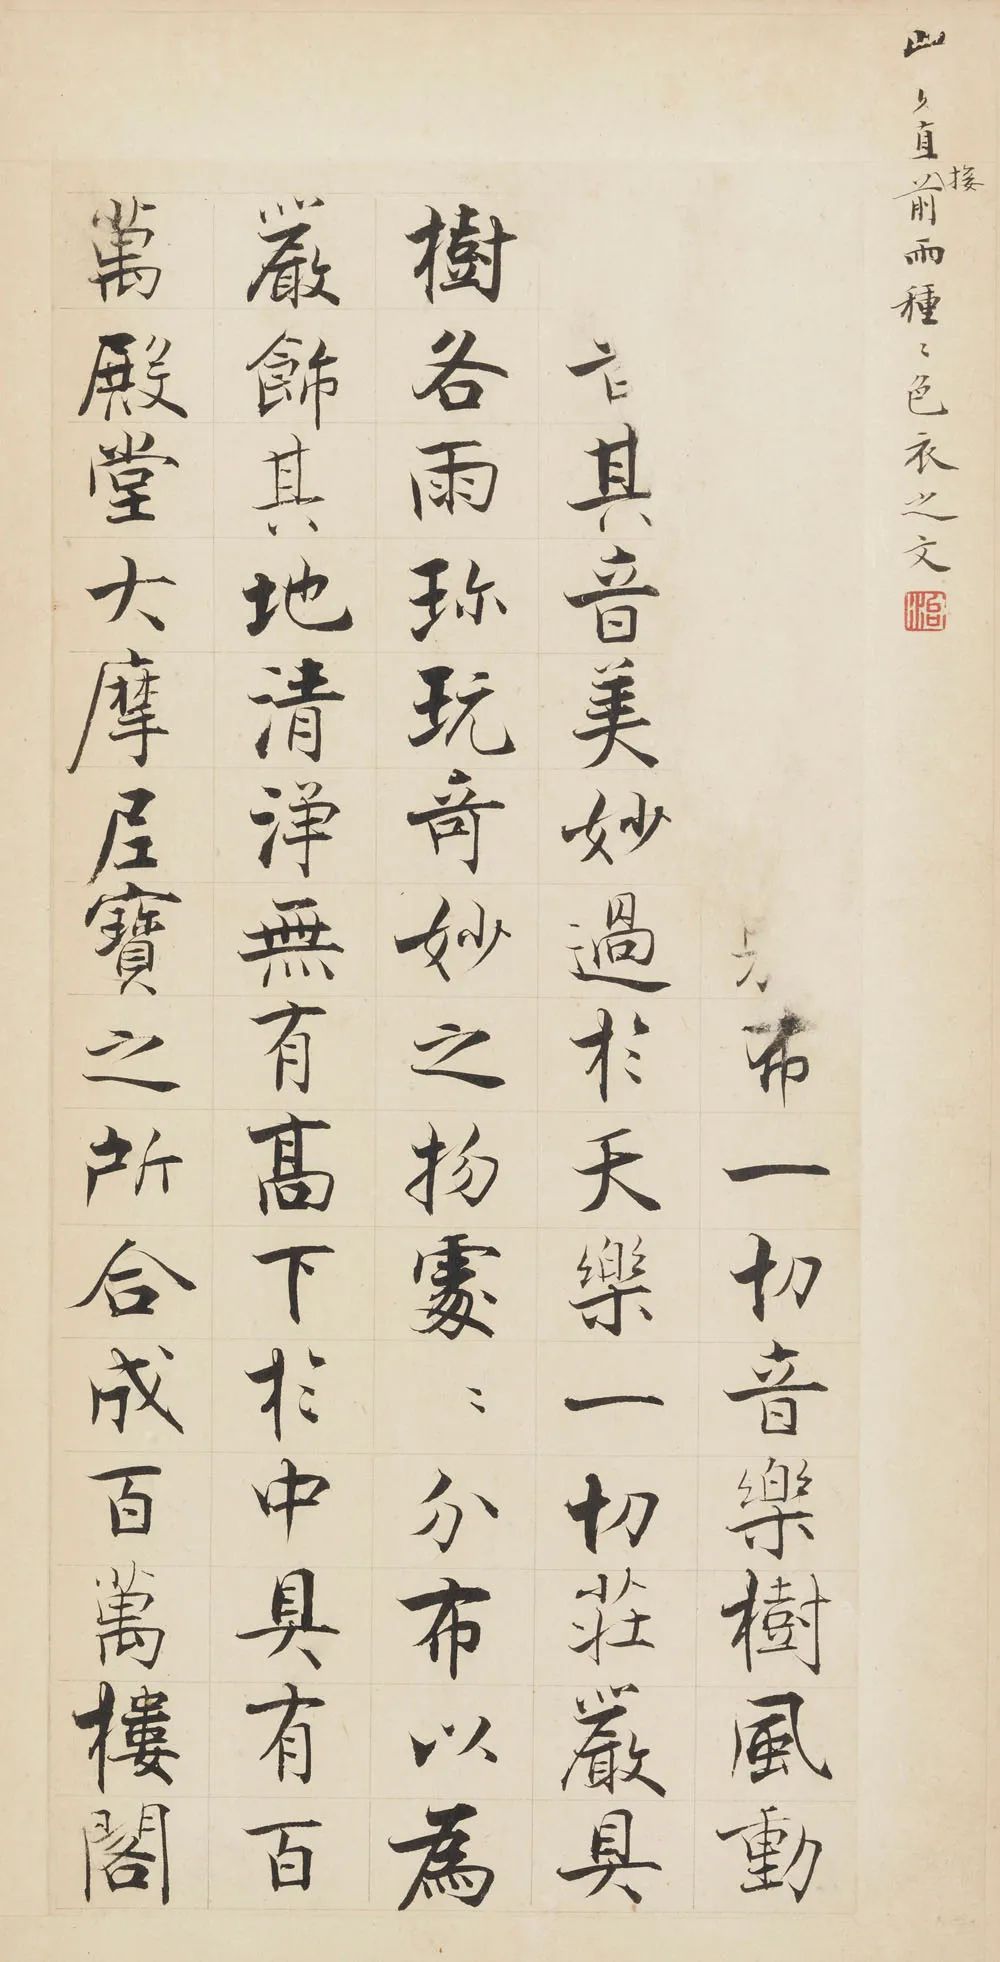 直接前雨種〻色衣之文
布一切音樂樹風動
音其音美妙過於天樂一切莊嚴具
樹各雨珎玩奇妙之物處〻分布以為
嚴飾其地清淨無有高下於中具有百
萬殿堂大摩尼寶之所合成百萬樓閣